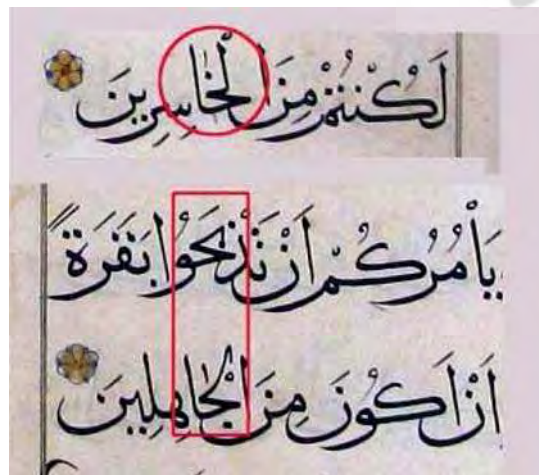 لَكُنْتُمْ مِنَ الْخَاسِرِينَ
يَأْمُرُكُمْ اَنْ تَذْبَحُوا بَقَرَةً
اَنْ اَكُونَ مِنَ الْجَاهِلِينَ